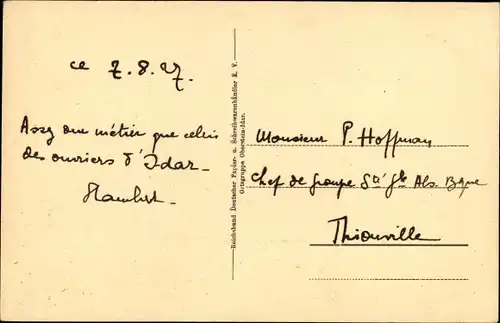 ce 7.8.27.
Assez dur métier que celui
des ouvriers d'Idar_
Hambert_
Reichsbund Deutscher Papier- u. Schreibwarenhändler E. V.
Ortsgruppe Oberstein-Idar.
Monsieur P. Hoffman
Chef de groupe Sté Gle Als. Bque
Thionville